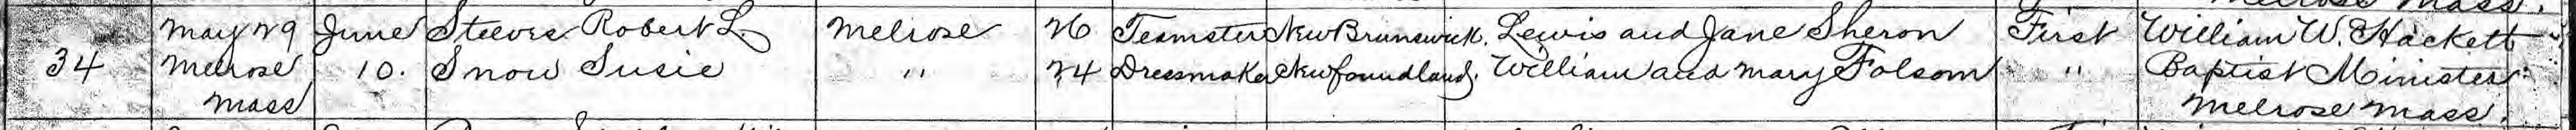 Melrose Mass.
May 29 June Steeves Robert L. Melrose 26 Teamster New Brunswick. Lewis and Jane Sheron First William W. Hackett
34 Melrose 10. Snow Susie " 24 Dressmaker Newfoundland. William and Mary Folsom " Baptist Minister
Mass Melrose Mass.